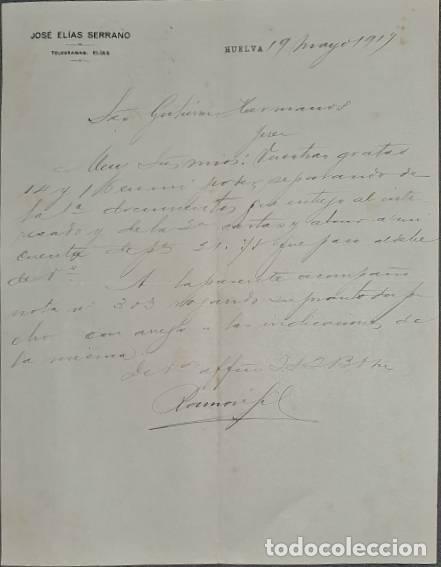 JOSÉ ELÍAS SERRANO
TELEGRAMAS: ELÍAS
HUELVA 19 Mayo 1917
Gutierrez Hermanos
Jerez
Muy Sres mios: Vuestras gratas
14 y 16 en mi poder, separando de
la 1ª documentos que entrego al inte
resado y de la 2ª cartas y abono a mi
cuenta de pts 21.75 que paso al debe
de Vs. A la presente acompaño
nota nº 303 su pronto despa
cho con arreglo a las indicaciones de
la misma.
De Vs affmo
todocoleccion
todocoleccion.net